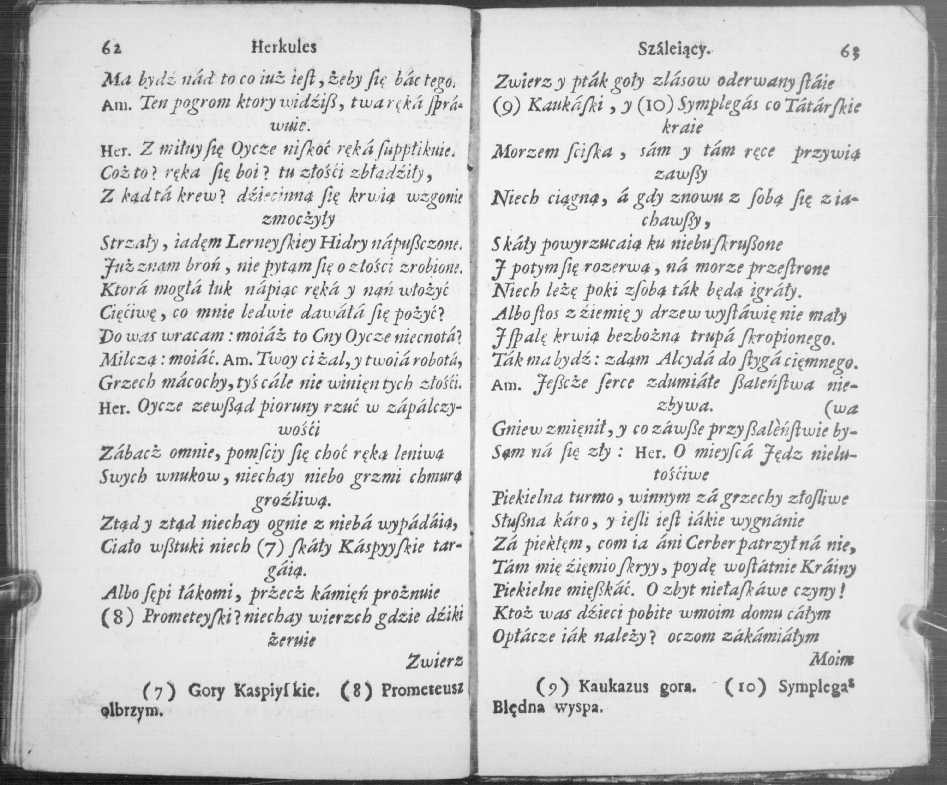 62 Herkules
Ma bydź nád to co iuż ieſt, żeby ſię báć tego.
Am. Ten pogrom ktory widźiß, twa ręká ſprá-
wuie.
Her. Z miłuy ſię Oycze niſkoć ręká ſuppłikuie.
Coż to? ręka ſię boi? tu złośći zbładźiły,
Z kądtá krew? dźiećinną ſię krwią wzgonie
zmocżyły
Strzały, iadęm Lerneyſkiey Hidry nápußczone.
Już znam broń, nie pytąm ſię o złośći zrobione.
Ktorá mogłá łuk nápiąc ręká y nąń włożyć
Cięćiwę, co mnie ledwie dawáłá ſię pożyć?
Do was wracam: moiáż to Cny Oycze niecnotá?
Milczą: moiáć. Am. Twoy ci żal, y twoiá robotá,
Grzech mácochy, tyś cále nie winięn tych złośći.
Her. Oycze zewßąd pioruny rzuć w zápálczy-
wośći
Zábacż omnie, pomſciy ſię choć ręką leniwą
Swych wnukow, niechay niebo grzmi chmurą
groźliwą.
Ztąd y ztąd niechay ognie z niebá wypádáią,
Ciało wßtuki niech (7) ſkáły Káspyyſkie tar-
gáią.
Albo ſępi łákomi, przecż kámięń prożnuie
(8) Prometeyſki? niechay wierzch gdzie dźiki
żeruie
Zwierz
(7) Gory Kaspiyſkie. (8) Prometeusz
olbrzym.
Száleiący. 63
Zwierz y pták goły zlásow oderwany ſtáie
(9) Kaukáſki, y (10) Symplegás co Tátárſkie
kraie
Morzem ſciſka, sám y tám ręce przywią
zawßy
Niech ciągną, á gdy znowu z ſobą ſię z ia-
chawßy,
Skáły powyrzucaią ku niebu ſkrußone
J potym ſię rozerwą, ná morze przeſtrone
Niech leżę poki zſobą ták będą igráły.
Albo ſtos z źiemię y drzew wyſtáwię nie máły
J ſpalę krwią bezbożną trupá ſkropionego.
Ták ma bydź: zdąm Alcydá do ſtygá cięmnego.
Am. Jeßcże ſerce zdumiáłe ßaleńſtwa nie-
zbywa. (wa
Gniew zmięnił, y co záwße przy ßaleńſtwie by-
Sąm ná ſię zły: Her. O mieyſcá Jędz nielu-
tośćiwe
Piekielna turmo, winnym zá grzechy złoſliwe
Słußna káro, y ieſli ieſt iákie wygnánie
Zá piekłęm, com ia áni Cerber patrzył ná nie,
Tám mię źięmio ſkryy, poydę woſtátnie Kráiny
Piekielne mięßkáć. O zbyt niełaſkáwe czyny!
Ktoż was dźieci pobite wmoim domu cáłym
Opłácze iák należy? oczom zákámiáłym
Moim
(9) Kaukazus gora. (10) Symplegas
Błędna wyspa.